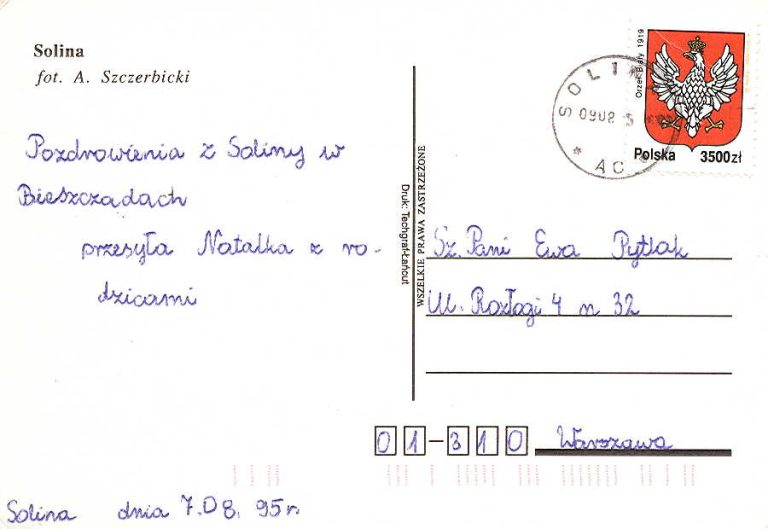 Solina
fot. A. Szczerbicki
Pozdrowienia z Soliny w
Bieszczadach
przesyła Natalka z ro-
dzicami
Solina dnia 7.08.95r.
Druk: Techgraf-Łańcut
WSZELKIE PRAWA ZASTRZEŻONE
Orzeł Biały 1919
Polska 3500zł
SOLINA
0908
Sz. Pani Ewa Pytlak
Ul. Rozłogi 4 m 32
01-310 Warszawa